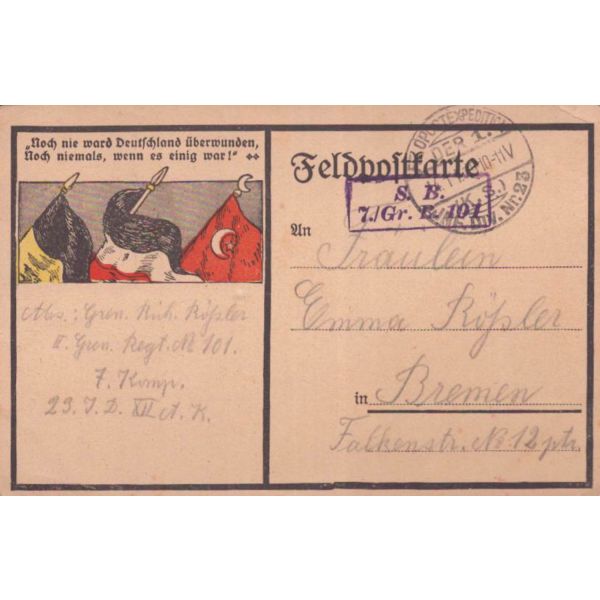 „Noch nie ward Deutschland überwunden,
Noch niemals, wenn es einig war!“
Feldpostkarte
S. B.
7./Gr. R. 101
DER 1.
10-11V
(K. S.)
INF. DIV. Nr. 23
An
Fräulein
Emma Rößler
in Bremen
Falkenstr. No 12 ptr.
Abs: Gren. Rich. Rößler
II. Gren. Regt. No 101.
7. Komp.
23. I. D. XII A. K.